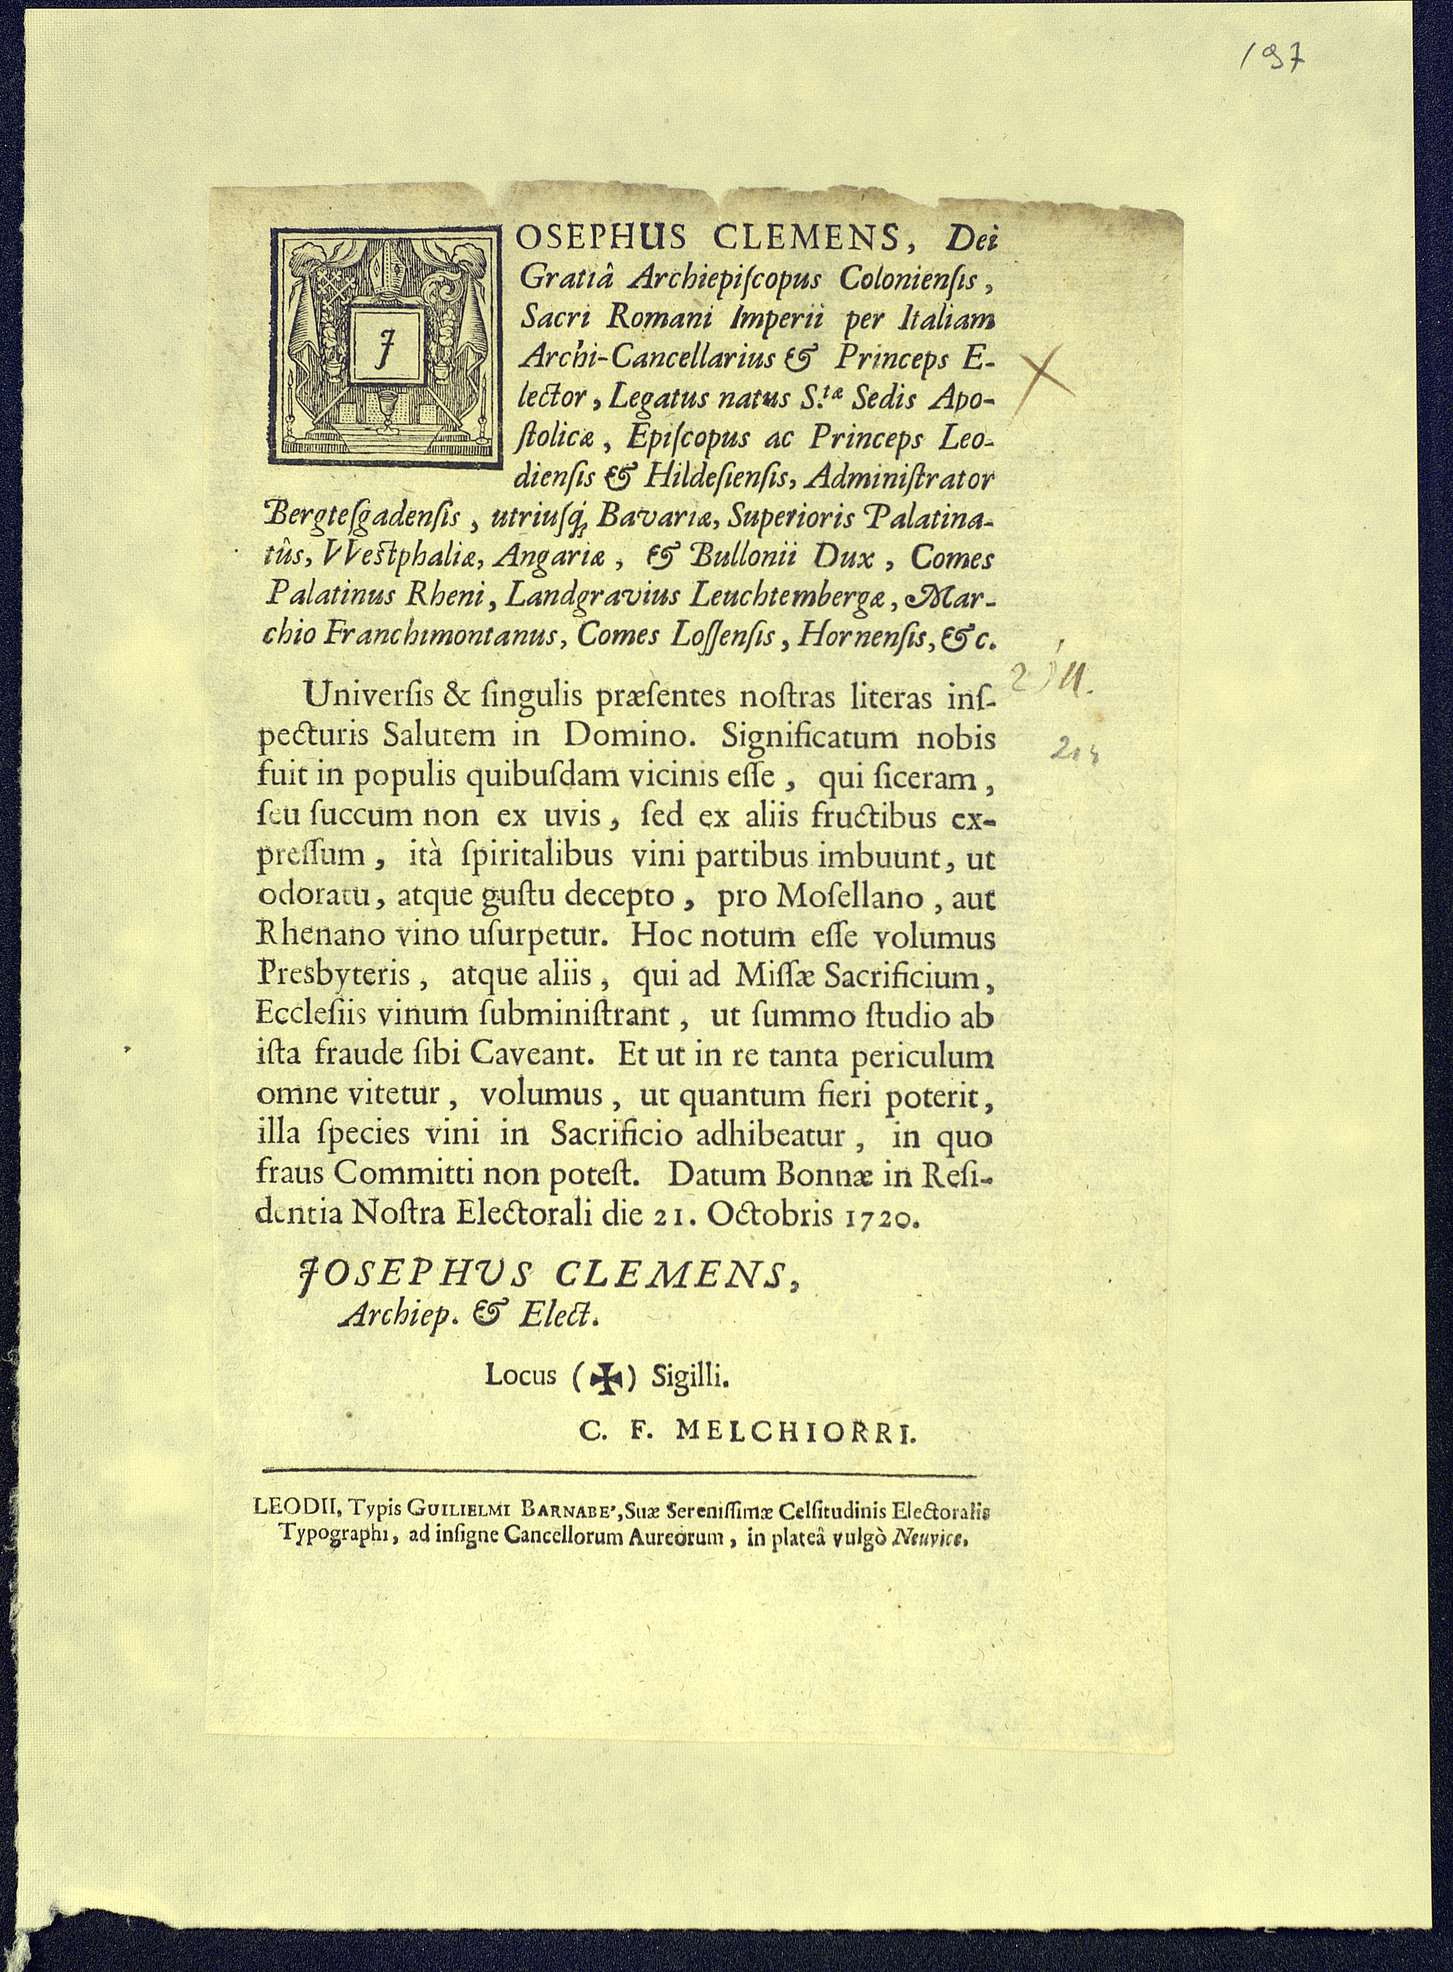 197
JOSEPHUS CLEMENS, Dei
Gratiâ Archiepiſcopus Colonienſis,
Sacri Romani Imperii per Italiam
Archi-Cancellarius & Princeps E-
lector, Legatus natus S.tæ Sedis Apo-
ſtolicæ, Epiſcopus ac Princeps Leo-
dienſis & Hildeſienſis, Adminiſtrator
Bergteſgadenſis, utriuſq; Bavariæ, Superioris Palatina-
tûs, VVeſtphaliæ, Angariæ, & Bullonii Dux, Comes
Palatinus Rheni, Landgravius Leuchtembergæ, Mar-
chio Franchimontanus, Comes Loſſenſis, Hornenſis, &c.
Univerſis & ſingulis præſentes noſtras literas inſ-
pecturis Salutem in Domino. Significatum nobis
fuit in populis quibuſdam vicinis eſſe, qui ſiceram,
ſeu ſuccum non ex uvis, ſed ex aliis fructibus ex-
preſſum, ità ſpiritalibus vini partibus imbuunt, ut
odoratu, atque guſtu decepto, pro Moſellano, aut
Rhenano vino uſurpetur. Hoc notum eſſe volumus
Presbyteris, atque aliis, qui ad Miſſæ Sacrificium,
Eccleſiis vinum ſubminiſtrant, ut ſummo ſtudio ab
iſta fraude ſibi Caveant. Et ut in re tanta periculum
omne vitetur, volumus, ut quantum fieri poterit,
illa ſpecies vini in Sacrificio adhibeatur, in quo
fraus Committi non poteſt. Datum Bonnæ in Reſi-
dentia Noſtra Electorali die 21. Octobris 1720.
JOSEPHUS CLEMENS,
Archiep. & Elect.
Locus (✠) Sigilli.
C. F. MELCHIORRI.
LEODII, Typis GUILIELMI BARNABE', Suæ Sereniſſimæ Celſitudinis Electoralis
Typographi, ad inſigne Cancellorum Aureorum, in plateâ vulgò Neuvice.